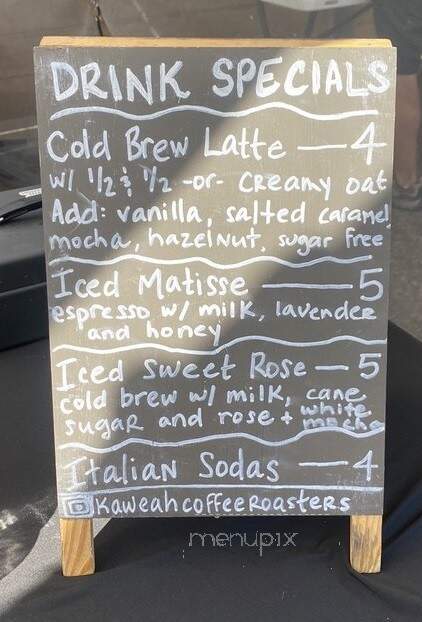 DRINK SPECIALS
Cold Brew Latte — 4
w/ 1/2 & 1/2 -or- Creamy oat
Add: vanilla, salted caramel
mocha, hazelnut, sugar free
Iced Matisse — 5
espresso w/ milk, lavender
and honey
Iced Sweet Rose — 5
cold brew w/ milk, cane
sugar and rose + white
mocha
Italian Sodas — 4
Kaweahcoffeeroasters
menupix